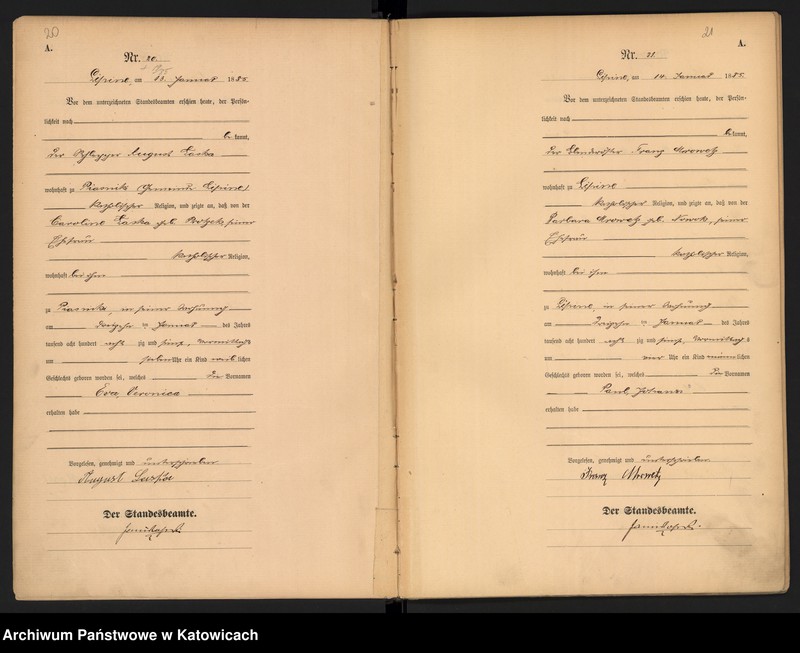 20
A.
Nr. 20.
Lipine, am 13. Januar 1885.
Vor dem unterzeichneten Standesbeamten erschien heute, der Persön-
lichkeit nach
be kannt,
der August
wohnhaft zu Piasniki (Gemeinde Lipine)
katholischer Religion, und zeigte an, daß von der
Caroline geb. seiner
Ehefrau
katholischer Religion,
wohnhaft bei ihm
zu Piasniki, in seiner Wohnung
am Januar des Jahres
tausend acht hundert acht zig und fünf, Vormittags
um sieben Uhr ein Kind weib lichen
Geschlechts geboren worden sei, welches die Vornamen
Eva, Veronica
erhalten habe
Vorgelesen, genehmigt und unterschrieben
August
Der Standesbeamte.
21
A.
Nr. 21.
Lipine, am 14. Januar 1885.
Vor dem unterzeichneten Standesbeamten erschien heute, der Persön-
lichkeit nach
be kannt,
der Franz Mrowetz
wohnhaft zu Lipine
katholischer Religion, und zeigte an, daß von der
Barbara Mrowetz geb. seiner
Ehefrau
katholischer Religion,
wohnhaft bei ihm
zu Lipine, in seiner Wohnung
am Januar des Jahres
tausend acht hundert acht zig und fünf, Vormittags
um vier Uhr ein Kind männ lichen
Geschlechts geboren worden sei, welches die Vornamen
Paul
erhalten habe
Vorgelesen, genehmigt und unterschrieben
Franz Mrowetz
Der Standesbeamte.
Archiwum Państwowe w Katowicach